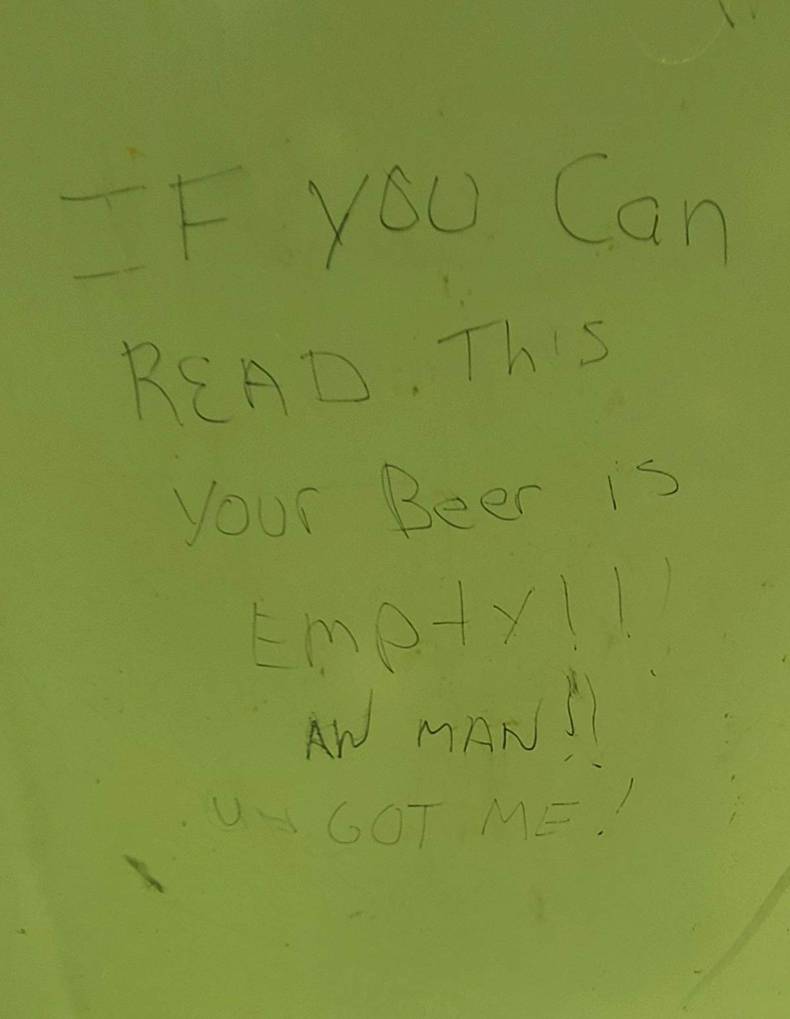 IF YOU Can
READ. This
your Beer is
Empty!!!
AW MAN!!
GOT ME!